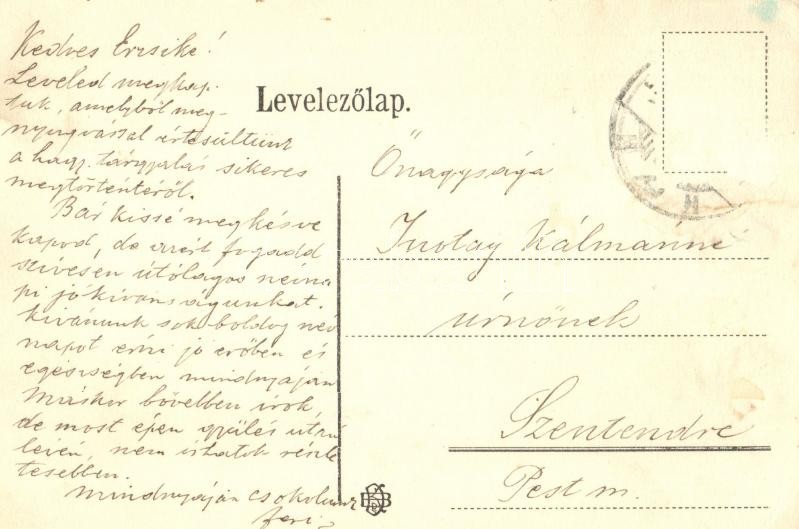 Kedves Erzsike!
Leveled megkap-
tuk, amelyből meg-
nyugvással értesültünk
a hagy. tárgyalás sikeres
megtörténteről.
Bár kissé megkésve
kapod, de azért fogadd
szivesen útólagos névna
pi jókivánságunkat.
Kivánunk sok boldog név
napot érni jó erőben és
egészségben mindnyáján
Másker bővebben irok,
de most épen gyülés után
lévén, nem irhatok részle
tesebben.
Mindnyáján csokolunk
Feri
Levelezőlap.
Őnagysága
Inotay Kálmánné
úrnőnek
Szentendre
Pest m.